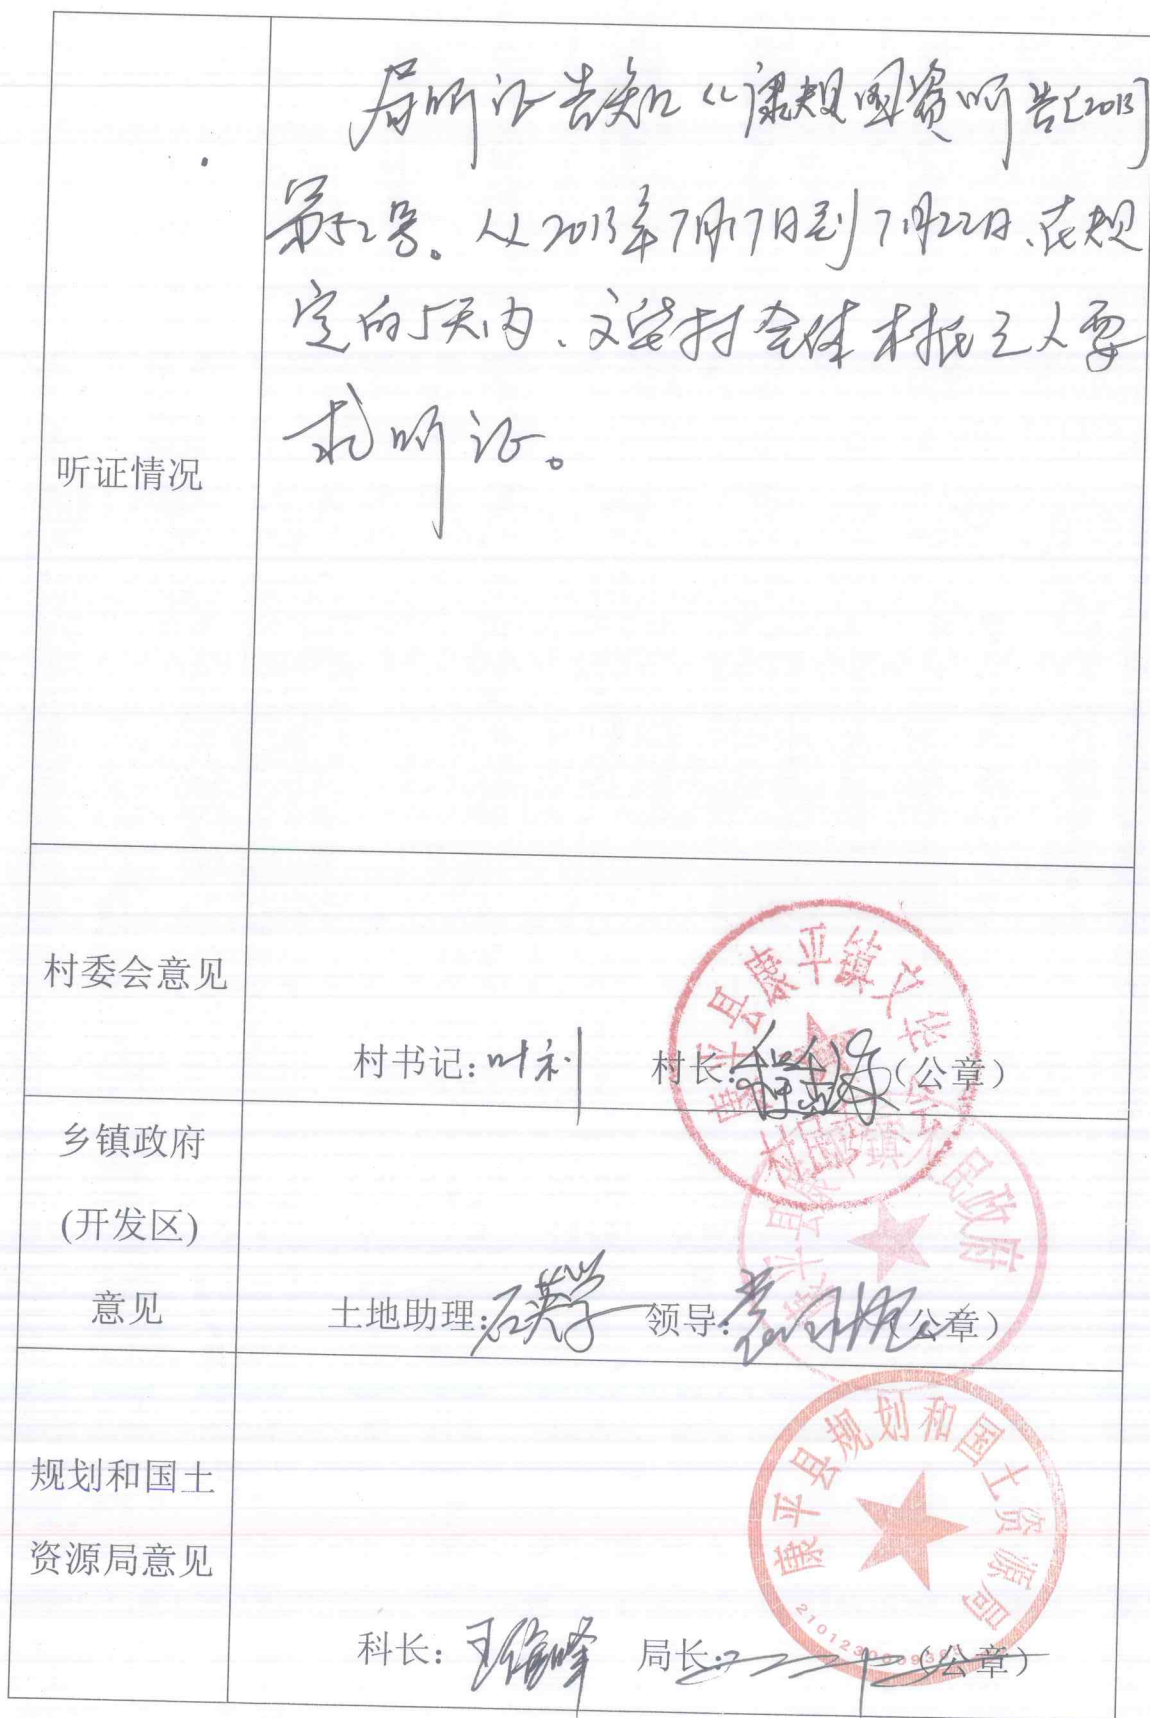 局听证告知《康规国资听告[2013]
第52号。从2013年7月17日到7月22日、在规
定的5天内、文华村全体村民无人要
求听证。
听证情况
村委会意见
村书记:叶利 村长: (公章)
康平县康平镇文华村村民委员会
乡镇政府
(开发区)
意见
土地助理:石英学 领导: 公章)
康平县康平镇人民政府
规划和国土
资源局意见
科长:王 峰 局长: (公章)
康平县规划和国土资源局